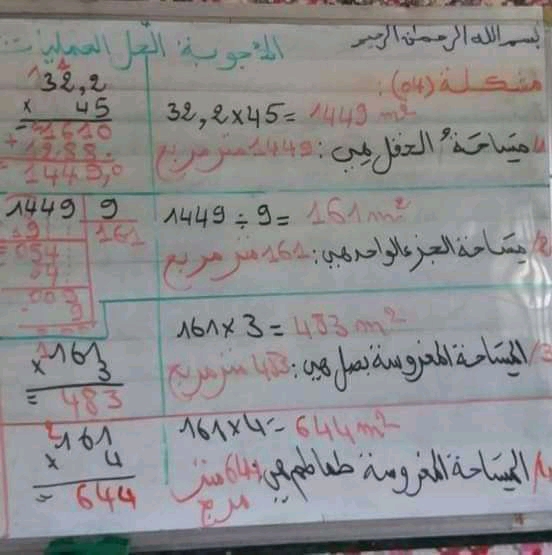 بسم الله الرحمن الرحيم
الأجوبة الحل العمليات
مشكلة (04):
32,2×45= 1449 m²
1/ مساحة الحقل هي: 1449 متر مربع
32,2
× 45
= 1610
+ 1288.
= 1449,0
1449 ÷ 9= 161 m²
2/ مساحة الجزء الواحد هي: 161 متر مربع
1449 | 9
9 | 161
= 054
54
009
- 9
161×3 = 483 m²
3/ المساحة المغروسة بصل هي: 483 متر مربع
161
× 3
= 483
161×4= 644 m²
4/ المساحة المغروسة طماطم هي: 64 متر
مربع
161
× 4
= 644